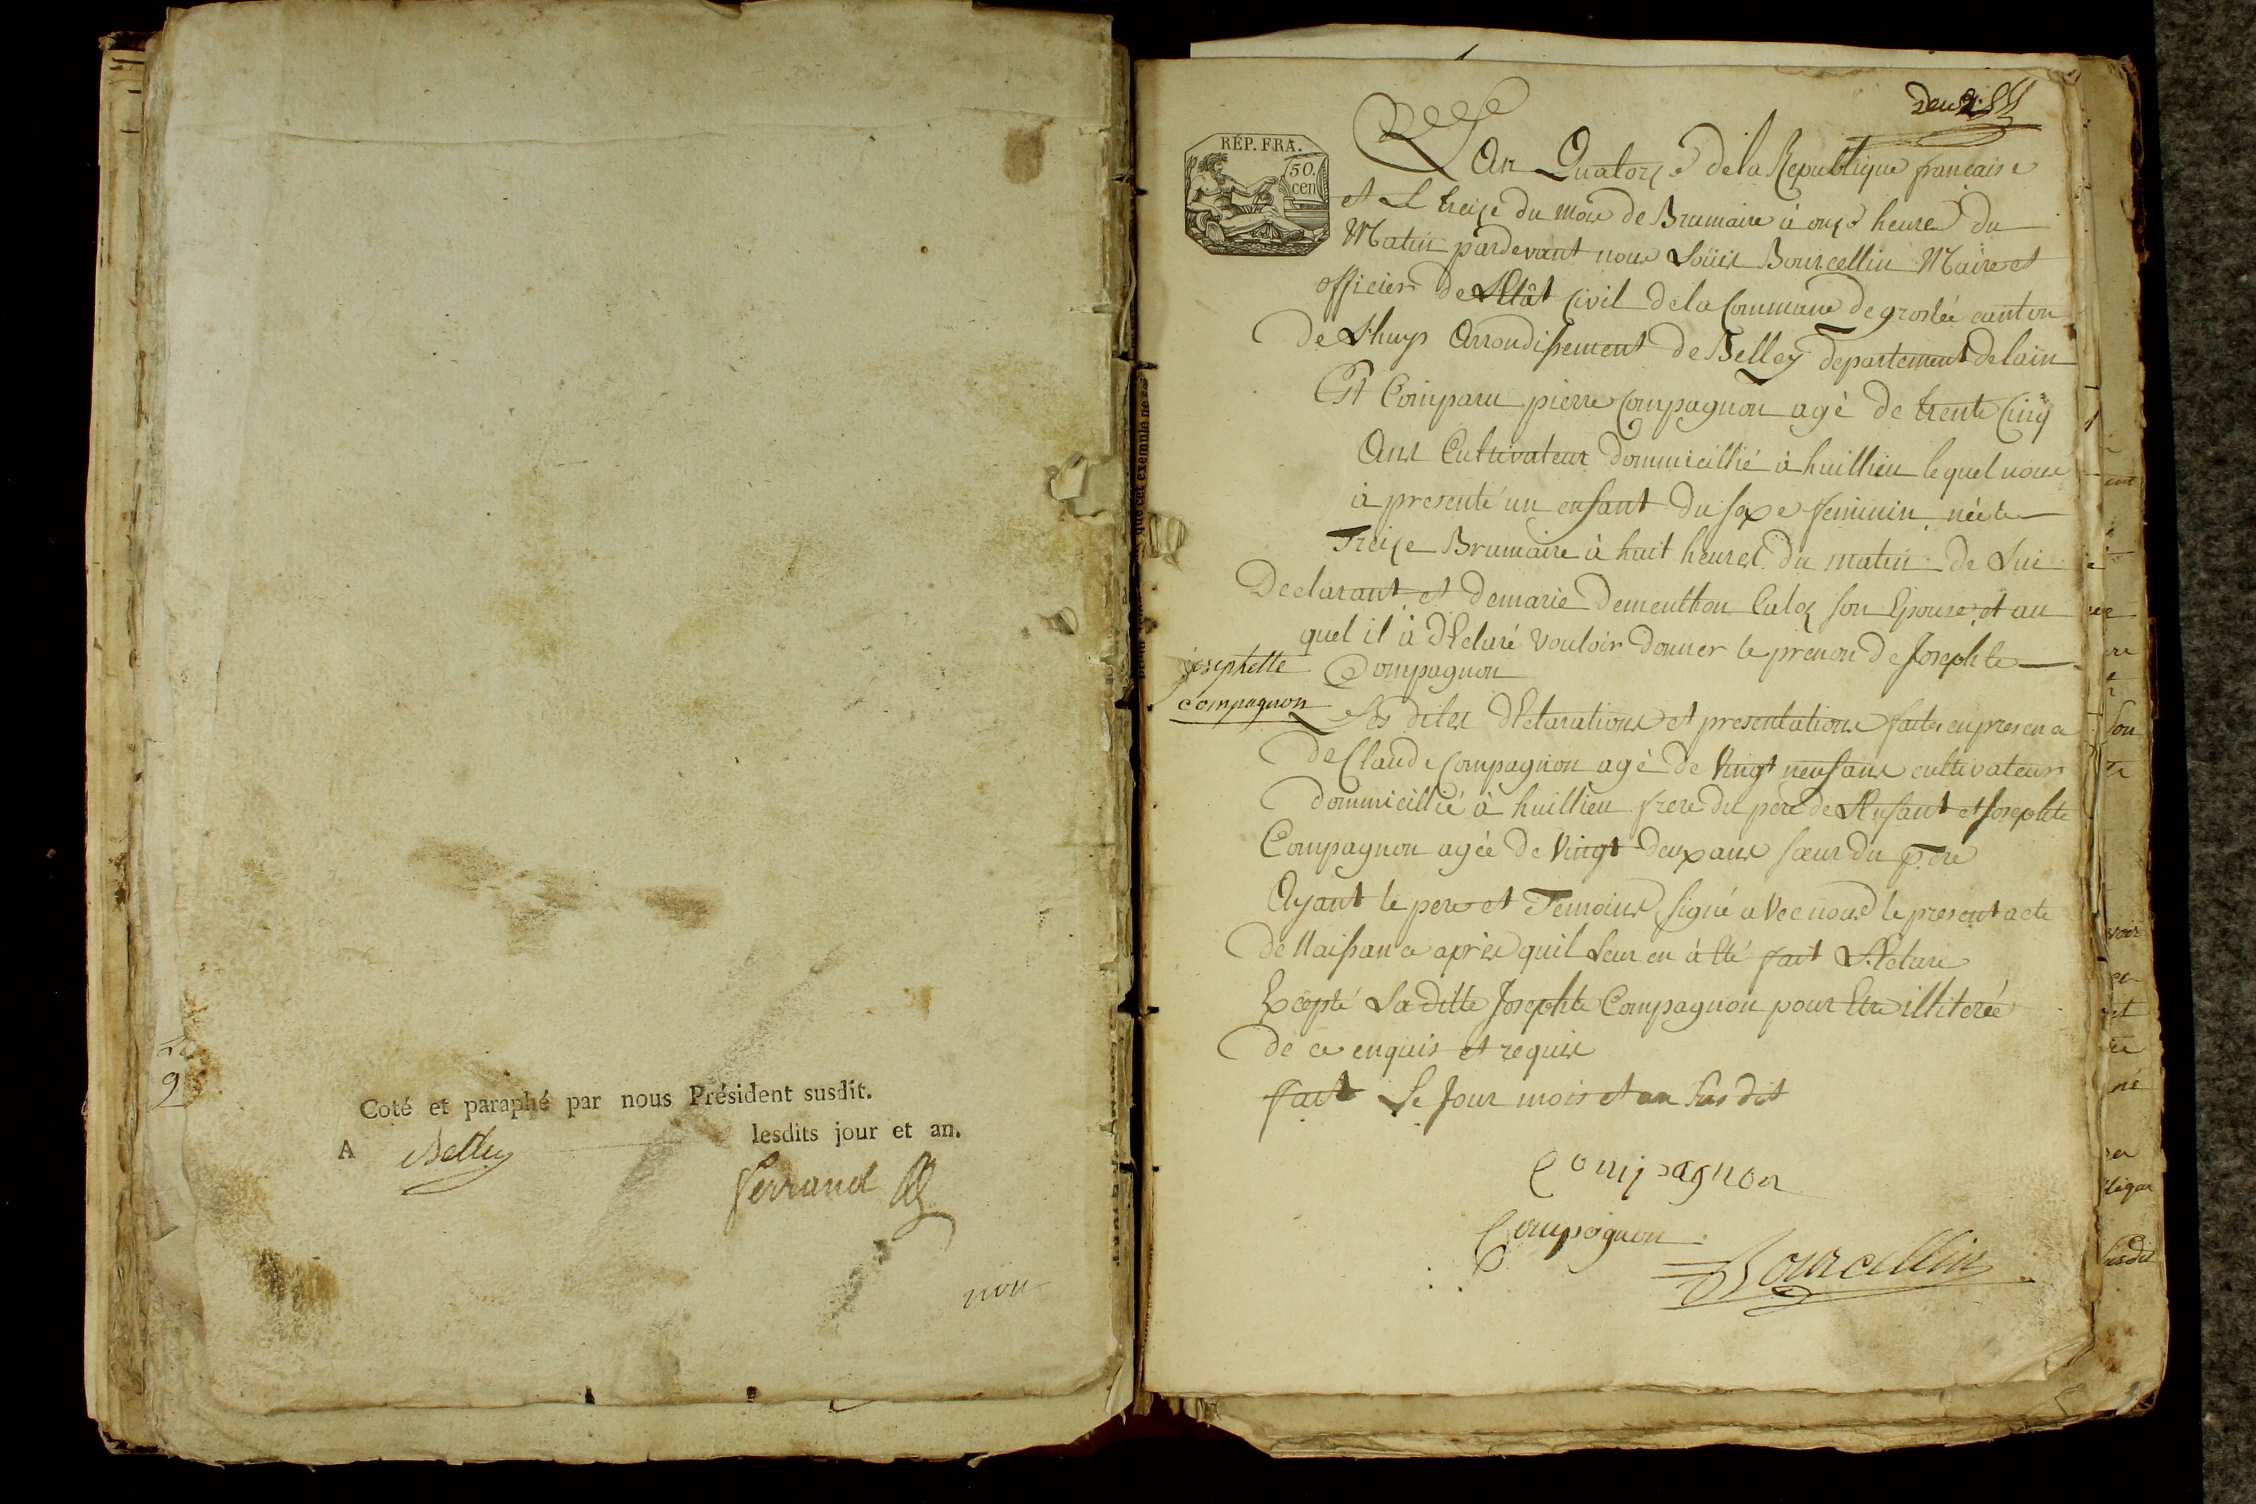 Coté et paraphé par nous Président susdit.
A Belley lesdits jour et an.
Ferrand
non
deux
RÉP. FRA.
50.
cen
L'an Quatorze de la Republique francaise
et le treize du mois de Brumaire à onze heures du
Matin pardevant nous Loüis Bourcellin Maire et
officier de l'Etât Civil de la Commune de groslée canton
de L'huys Arrondissement de Belley departement de lain
Est Comparu pierre Compagnon agé de trente Cinq
Ans Cultivateur dommicillié à huillieu lequel nous
à presenté un enfant du sexe feminin née le
Treize Brumaire à huit heures du matin de Lui
Declarant et de marie dementhon Caloz son Epouse, et au
quel il à déclaré vouloir donner le prenon de Josephte
Compagnon
josephette
compagnon
Les dites déclarations et presentations faites en presence
de Claude Compagnon agé de Vingt neuf ans cultivateur
dommicillié à huillieu frere du pere de l'Enfant et Josephte
Compagnon agée de Vingt deux ans sœur du pere
Ayant le pere et Temoins signé avec nous le present acte
de Naissance après quil Leur en à été fait Lécture
Excepté La ditte Josephte Compagnon pour Etre illiterée
de ce enquis et requise
fait Le Jour mois et an susdit
Compagnon
Compagnon
Bourcellin